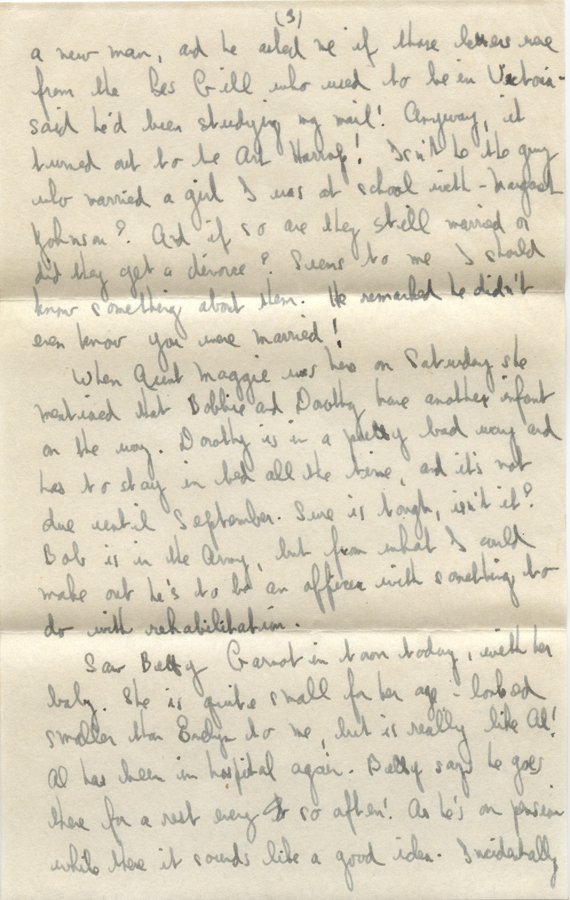 (3)
a new man, and he asked me if those letters were
from the Bes Gill who used to be in Victoria -
said he'd been studying my mail! Anyway, it
turned out to be Art Harrop! Isn't he the guy
who married a girl I was at school with - Margaret
Johnson? And if so are they still married or
did they get a divorce? Seems to me I should
know something about them. He remarked he didn't
even know you were married!
When Aunt Maggie was here on Saturday she
mentioned that Bobbie and Dorothy have another infant
on the way. Dorothy is in a pretty bad way and
has to stay in bed all the time, and it's not
due until September. Sure is tough, isn't it?
Bob is in the Army, but from what I could
make out he's to be an officer with something to
do with rehabilitation.
Saw Betty in town today, with her
baby. She is quite small for her age - looked
smaller than Evelyn to me, but is really like Al!
Al has been in hospital again. Betty says he goes
there for a rest every so often! As he's on pension
while there it sounds like a good idea. Incidentally